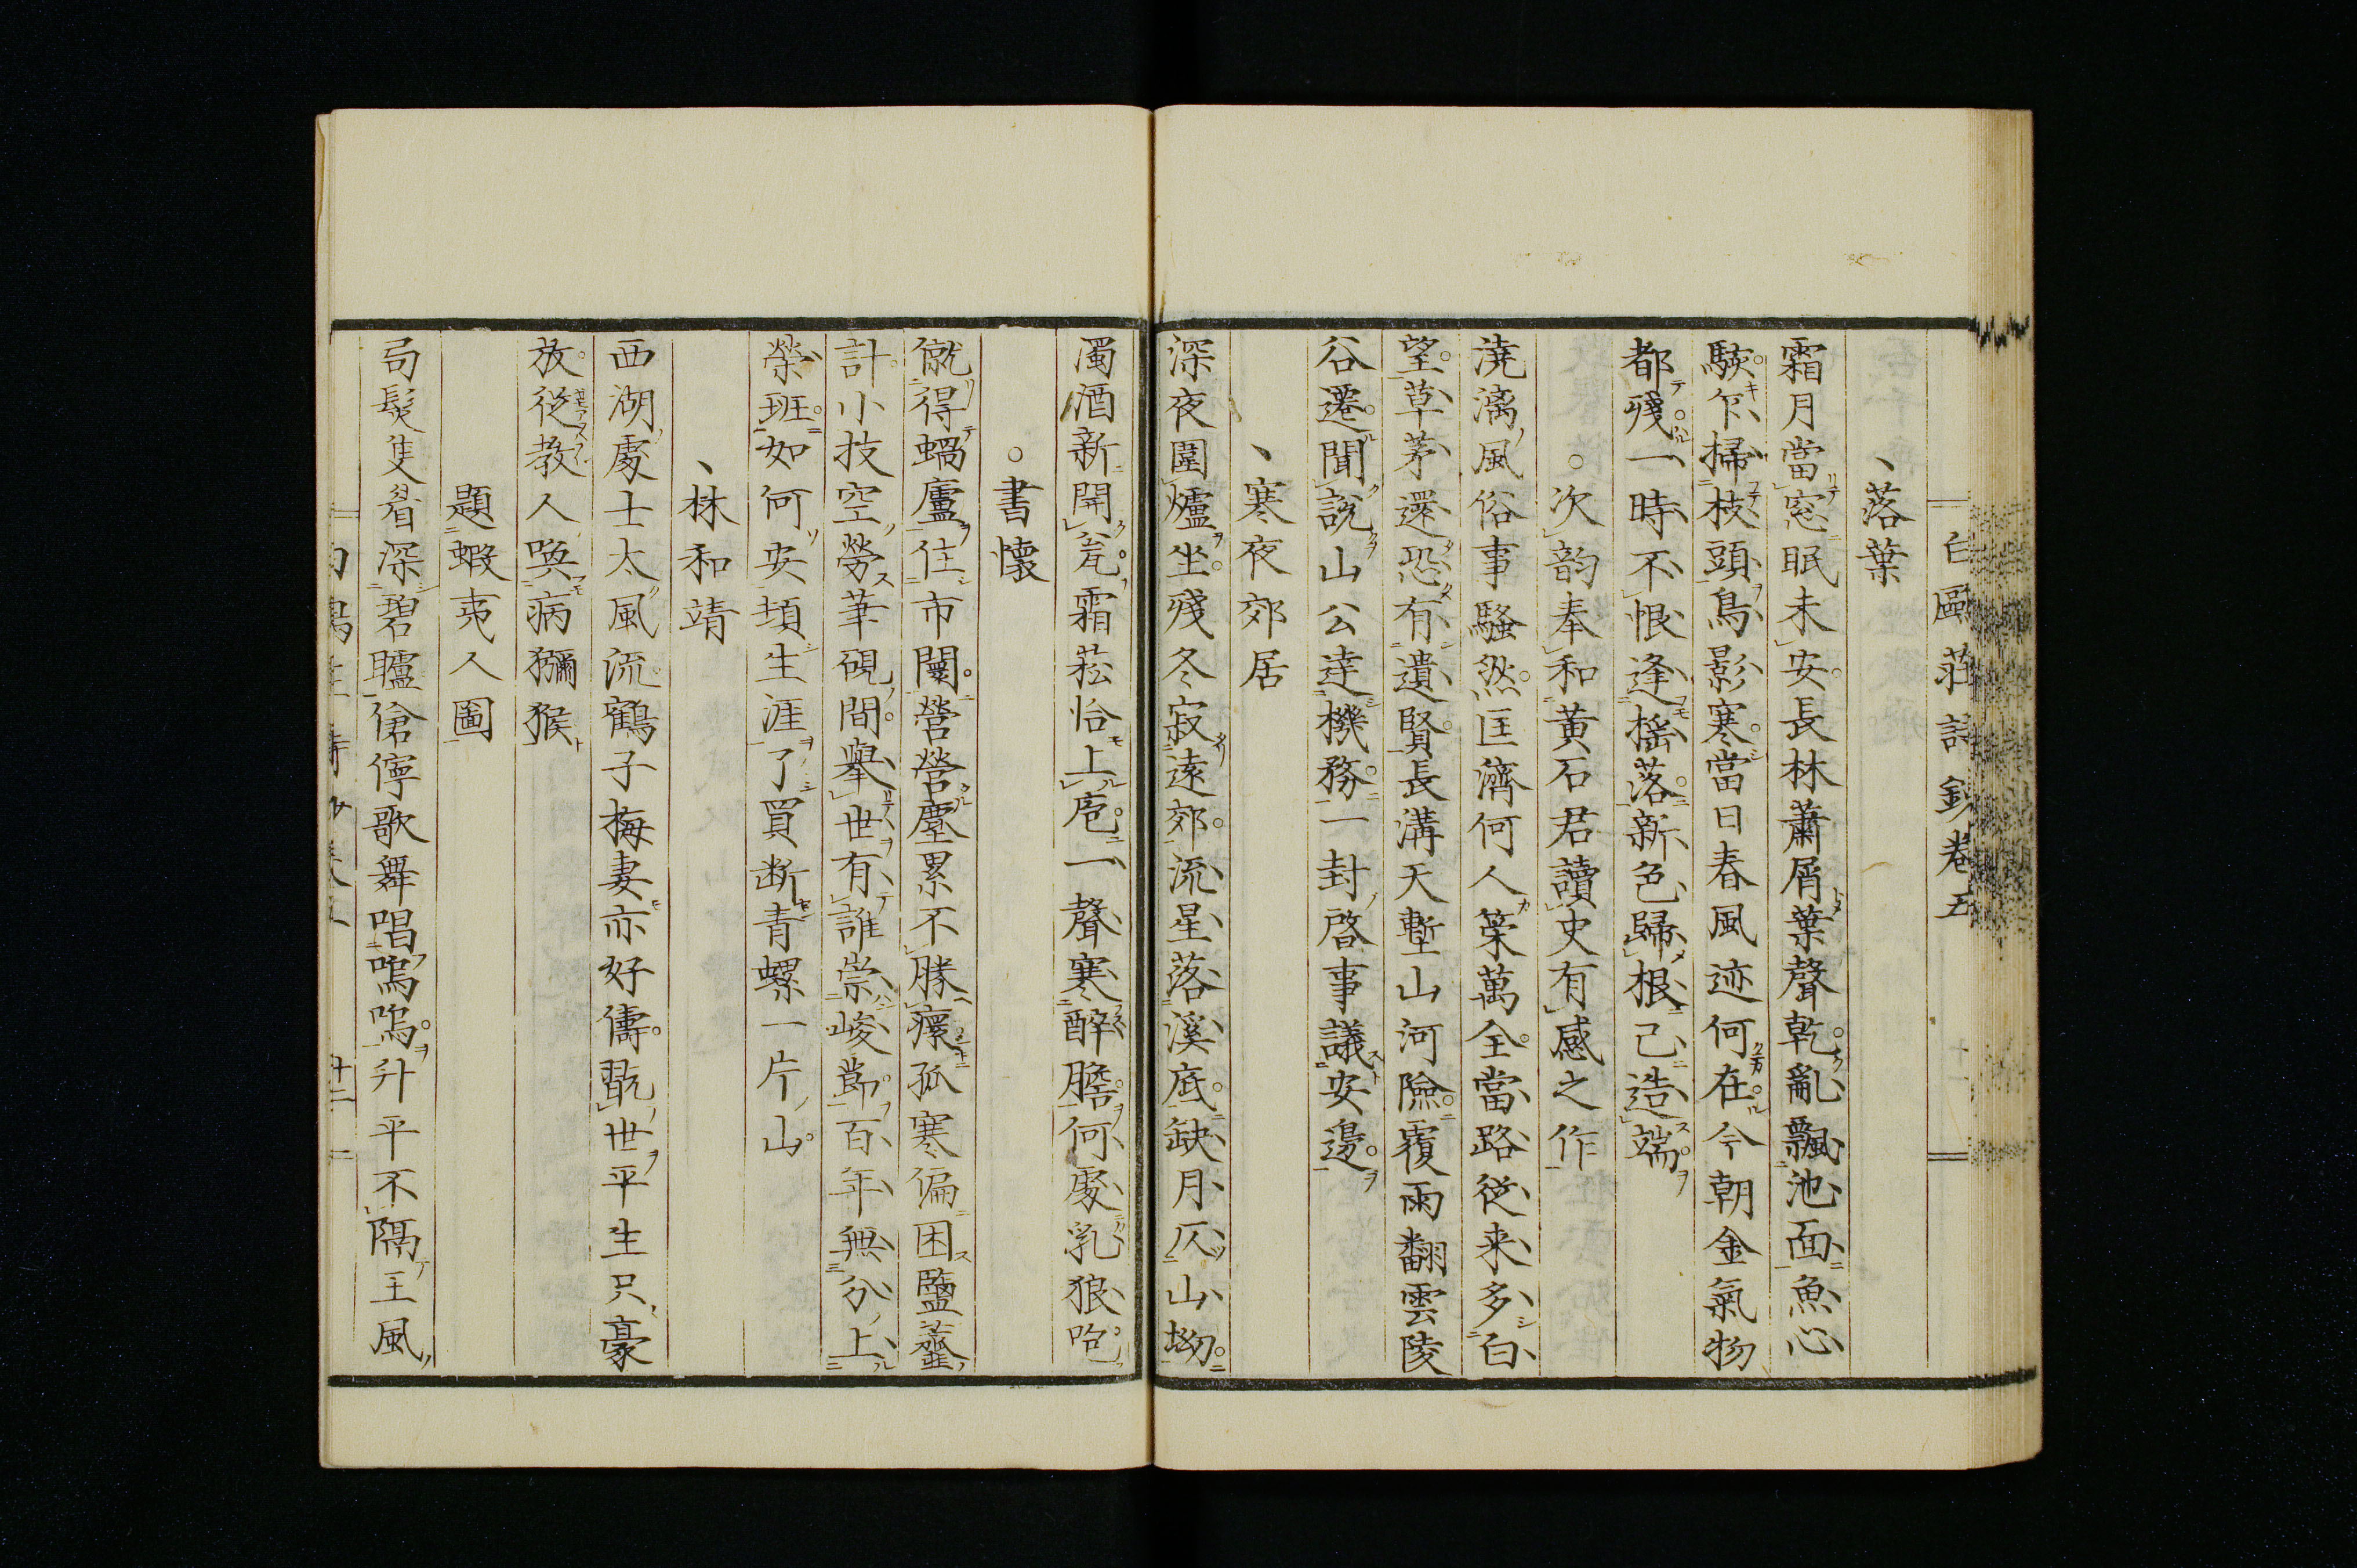 白鷗荘詩鈔巻五
落葉
霜月當窓眠未安長林蕭屑葉聲乾亂飄池面魚心
駭乍掃枝頭鳥影寒當日春風迹何在今朝金氣物
都殘一時不恨逢搖落新色歸根已造端
次韵奉和黄石君讀史有感之作
澆漓風俗事騷然匡濟何人筞萬全當路從来多白
望草茅還恐有遺賢長溝天塹山河險覆雨翻雲陵
谷遷聞說山公達機務一封啓事議安邊
寒夜郊居
深夜圍爐坐殘冬寂遠郊流星落溪底缺月仄山坳
濁酒新開瓮霜菘恰上庖一聲寒醉膽何處乳狼咆
書懷
僦得蝸廬住市闤營營塵累不勝瘝孤寒偏困鹽虀
計小技空勞筆硯間擧世有誰崇峻節百年無分上
榮班如何安頓生涯了買断青螺一片山
林和靖
西湖處士太風流鶴子梅妻亦好儔翫世平生只豪
放從教人喚病獼猴
題蝦夷人圖
曲髮隻眉深碧矑傖儜歌舞唱嗚嗚升平不隔王風
十二